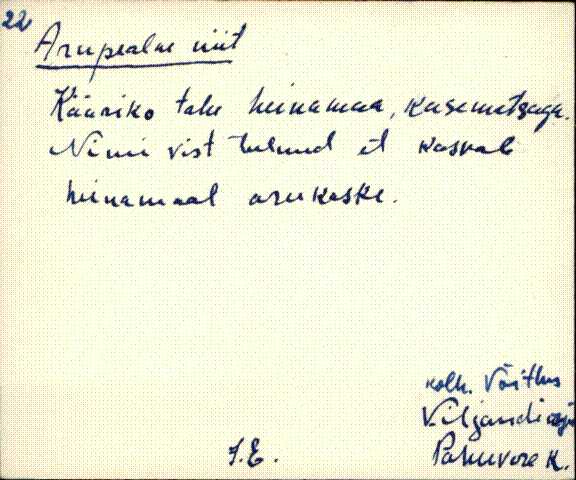 22
Arupealne niit
Kääriko talu heinamaa, kasemetsaga.
Nimi vist tulnud et kasvab
heinamaal arukaske.
kolh. Võitlus
Viljandi raj.
J.E.
Pahuvere K.